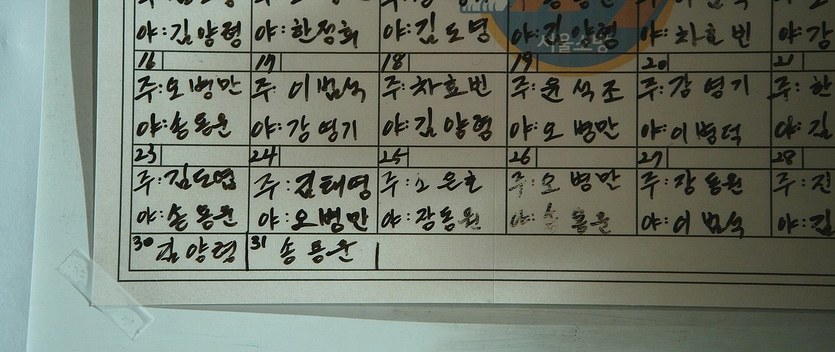 야:김양형 야:한정희 야:김도영 야:김양형 야:차효빈 야:강
서울소방
16 17 18 19 20 21
주:오병만 주:이범석 주:차효빈 주:윤석조 주:강영기 주:한
야:송용운 야:강영기 야:김양형 야:오병만 야:이병덕 야:김
23 24 25 26 27 28
주:김도엽 주:김태영 주: 은호 주:오병만 주:장동원 주:진
야:송용운 야:오병만 야:장동원 야:송용운 야:이범석 야:김
30 김양형 31 송용운